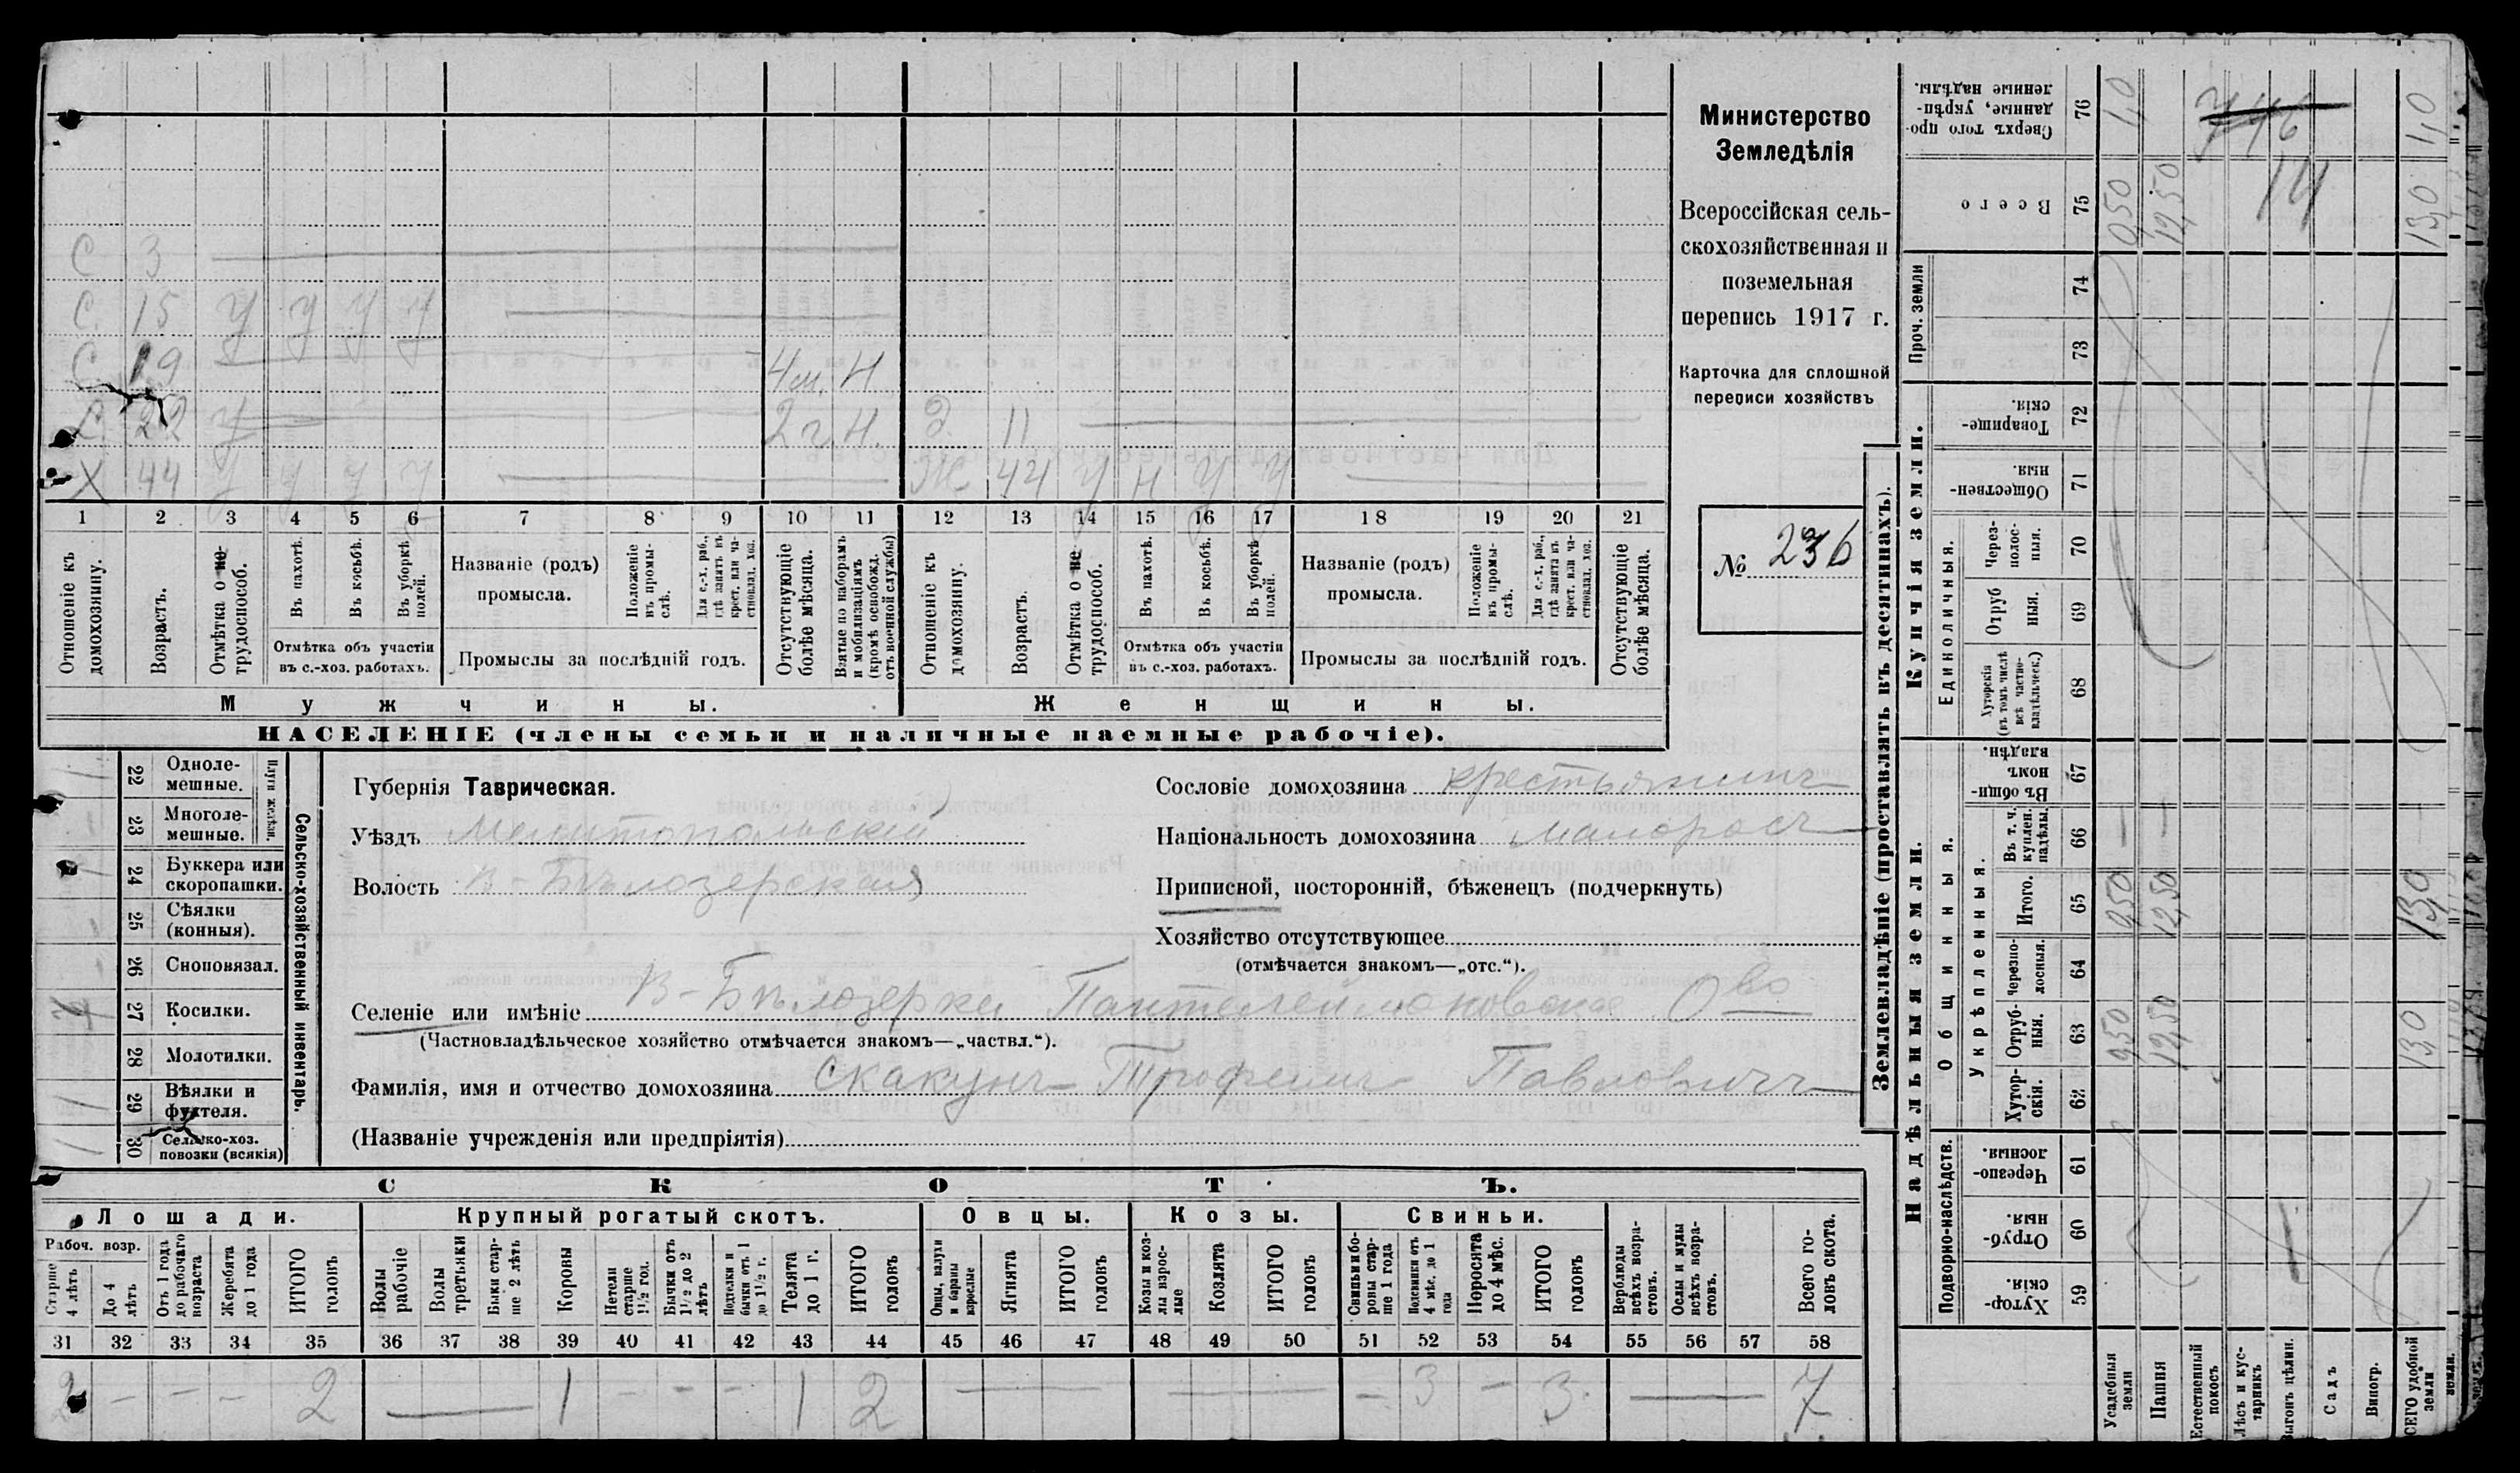 Министерство
Земледѣлія
Всероссійская сель-
скохозяйственная и
поземельная
перепись 1917 г.
Карточка для сплошной
переписи хозяйствъ
№ 236
С 3
С. 15 У У У У
С. 19 4 м. Н
С. 22 У 2 г. Н. Д 11
Х 44 У У У У Ж 44 У Н У У
1 2 3 4 5 6 7 8 9 10 11 12 13 14 15 16 17 18 19 20 21
Отношеніе къ домохозяину.
Возрастъ.
Отмѣтка о не-трудоспособ.
Въ пахотѣ.
Въ косьбѣ.
Въ уборкѣ полей.
Отмѣтка объ участіи въ с.-хоз. работахъ.
Названіе (родъ) промысла.
Положеніе въ промы-слѣ.
Для с.-х. раб., гдѣ занятъ въ крест. или ча-стновлад. хоз.
Промыслы за послѣдній годъ.
Отсутствующіе болѣе мѣсяца.
Взятые по наборамъ и мобилизаціямъ (кромѣ освобожд. отъ военной службы)
Отношеніе къ домохозяину.
Возрастъ.
Отмѣтка о не трудоспособ.
Въ пахотѣ.
Въ косьбѣ.
Въ уборкѣ полей.
Отмѣтка объ участіи въ с.-хоз. работахъ.
Названіе (родъ) промысла.
Положеніе въ промы-слѣ.
Для с.-х. раб., гдѣ занята въ крест. или ча-стновлад. хоз.
Промыслы за послѣдній годъ.
Отсутствующіе болѣе мѣсяца.
Мужчины.
Женщины.
НАСЕЛЕНІЕ (члены семьи и наличные наемные рабочіе).
Сельско-хозяйственный инвентарь.
Плуги желѣзн.
22 Одноле-мешные.
23 Многоле-мешные.
24 Буккера или скоропашки.
25 Сѣялки (конныя).
26 Сноповязал.
27 Косилки.
28 Молотилки.
29 Вѣялки и фухтеля.
30 Сельско-хоз. повозки (всякія)
Губернія Таврическая.
Уѣздъ Мелитопольскій
Волость В-Бѣлозерская
Сословіе домохозяина крестьянинъ
Національность домохозяина малоросъ
Приписной, посторонній, бѣженецъ (подчеркнуть)
Хозяйство отсутствующее
(отмѣчается знакомъ—„отс.“).
Селеніе или имѣніе В-Бѣлозерка Пантелеймоновское О-во
(Частновладѣльческое хозяйство отмѣчается знакомъ—„частвл.“).
Фамилія, имя и отчество домохозяина Скакунъ Трофимъ Павловичъ
(Названіе учрежденія или предпріятія)
СКОТЪ.
Лошади. Крупный рогатый скотъ. Овцы. Козы. Свиньи.
Рабоч. возр.
Старше 4 лѣтъ
До 4 лѣтъ
Отъ 1 года до рабочаго возраста
Жеребята до 1 года
ИТОГО головъ
Волы рабочіе
Волы третьяки
Быки стар-ше 2 лѣтъ
Коровы
Нетели старше 1½ год.
Бычки отъ 1½ до 2 лѣтъ
Подтелки и бычки отъ 1 до 1½ г.
Телята до 1 г.
ИТОГО головъ
Овцы, валухи и бараны взрослые
Ягнята
ИТОГО головъ
Козы и коз-лы взрос-лые
Козлята
ИТОГО головъ
Свиньи и бо-ровы стар-ше 1 года
Подсвинки отъ 4 мѣс. до 1 года
Поросята до 4 мѣс.
ИТОГО головъ
Верблюды всѣхъ возра-стовъ.
Ослы и мулы всѣхъ возра-стовъ.
Всего го-ловъ скота.
31 32 33 34 35 36 37 38 39 40 41 42 43 44 45 46 47 48 49 50 51 52 53 54 55 56 57 58
2 – – – 2 — 1 – – – 1 2 — — – 3 – 3 — 7
Землевладѣніе (проставлять въ десятинахъ).
Купчія земли.
Надѣльныя земли.
Сверхъ того про-данные, укрѣп-ленные надѣлы. 76 1,0 1,0
Всего 75 0,50 12,50 14 13,0
Проч. земли 74 73
Товарище-скія. 72
Обществен-ныя. 71
Единоличныя.
Через-полос-ныя. 70
Отруб ныя. 69
Хуторскія (въ томъ числѣ всѣ частно-владѣльческ.) 68
Общинныя.
Въ общи-номъ владѣн. 67
Укрѣпленныя.
Въ т. ч. куплен. надѣлы. 66 — —
Итого. 65 0,50 12,50 13,0
Черезпо-лосныя. 64
Отруб-ныя. 63 0,50 12,50 13,0
Хутор-скія. 62
Подворно-наслѣдств.
Черезпо-лосныя. 61
Отруб-ныя. 60
Хутор-скія. 59
Усадебныя земли
Пашня
Естественный покосъ
Лѣсъ и кус-тарникъ
Выгонъ цѣлин.
Садъ
Виногр.
ВСЕГО удобной земли